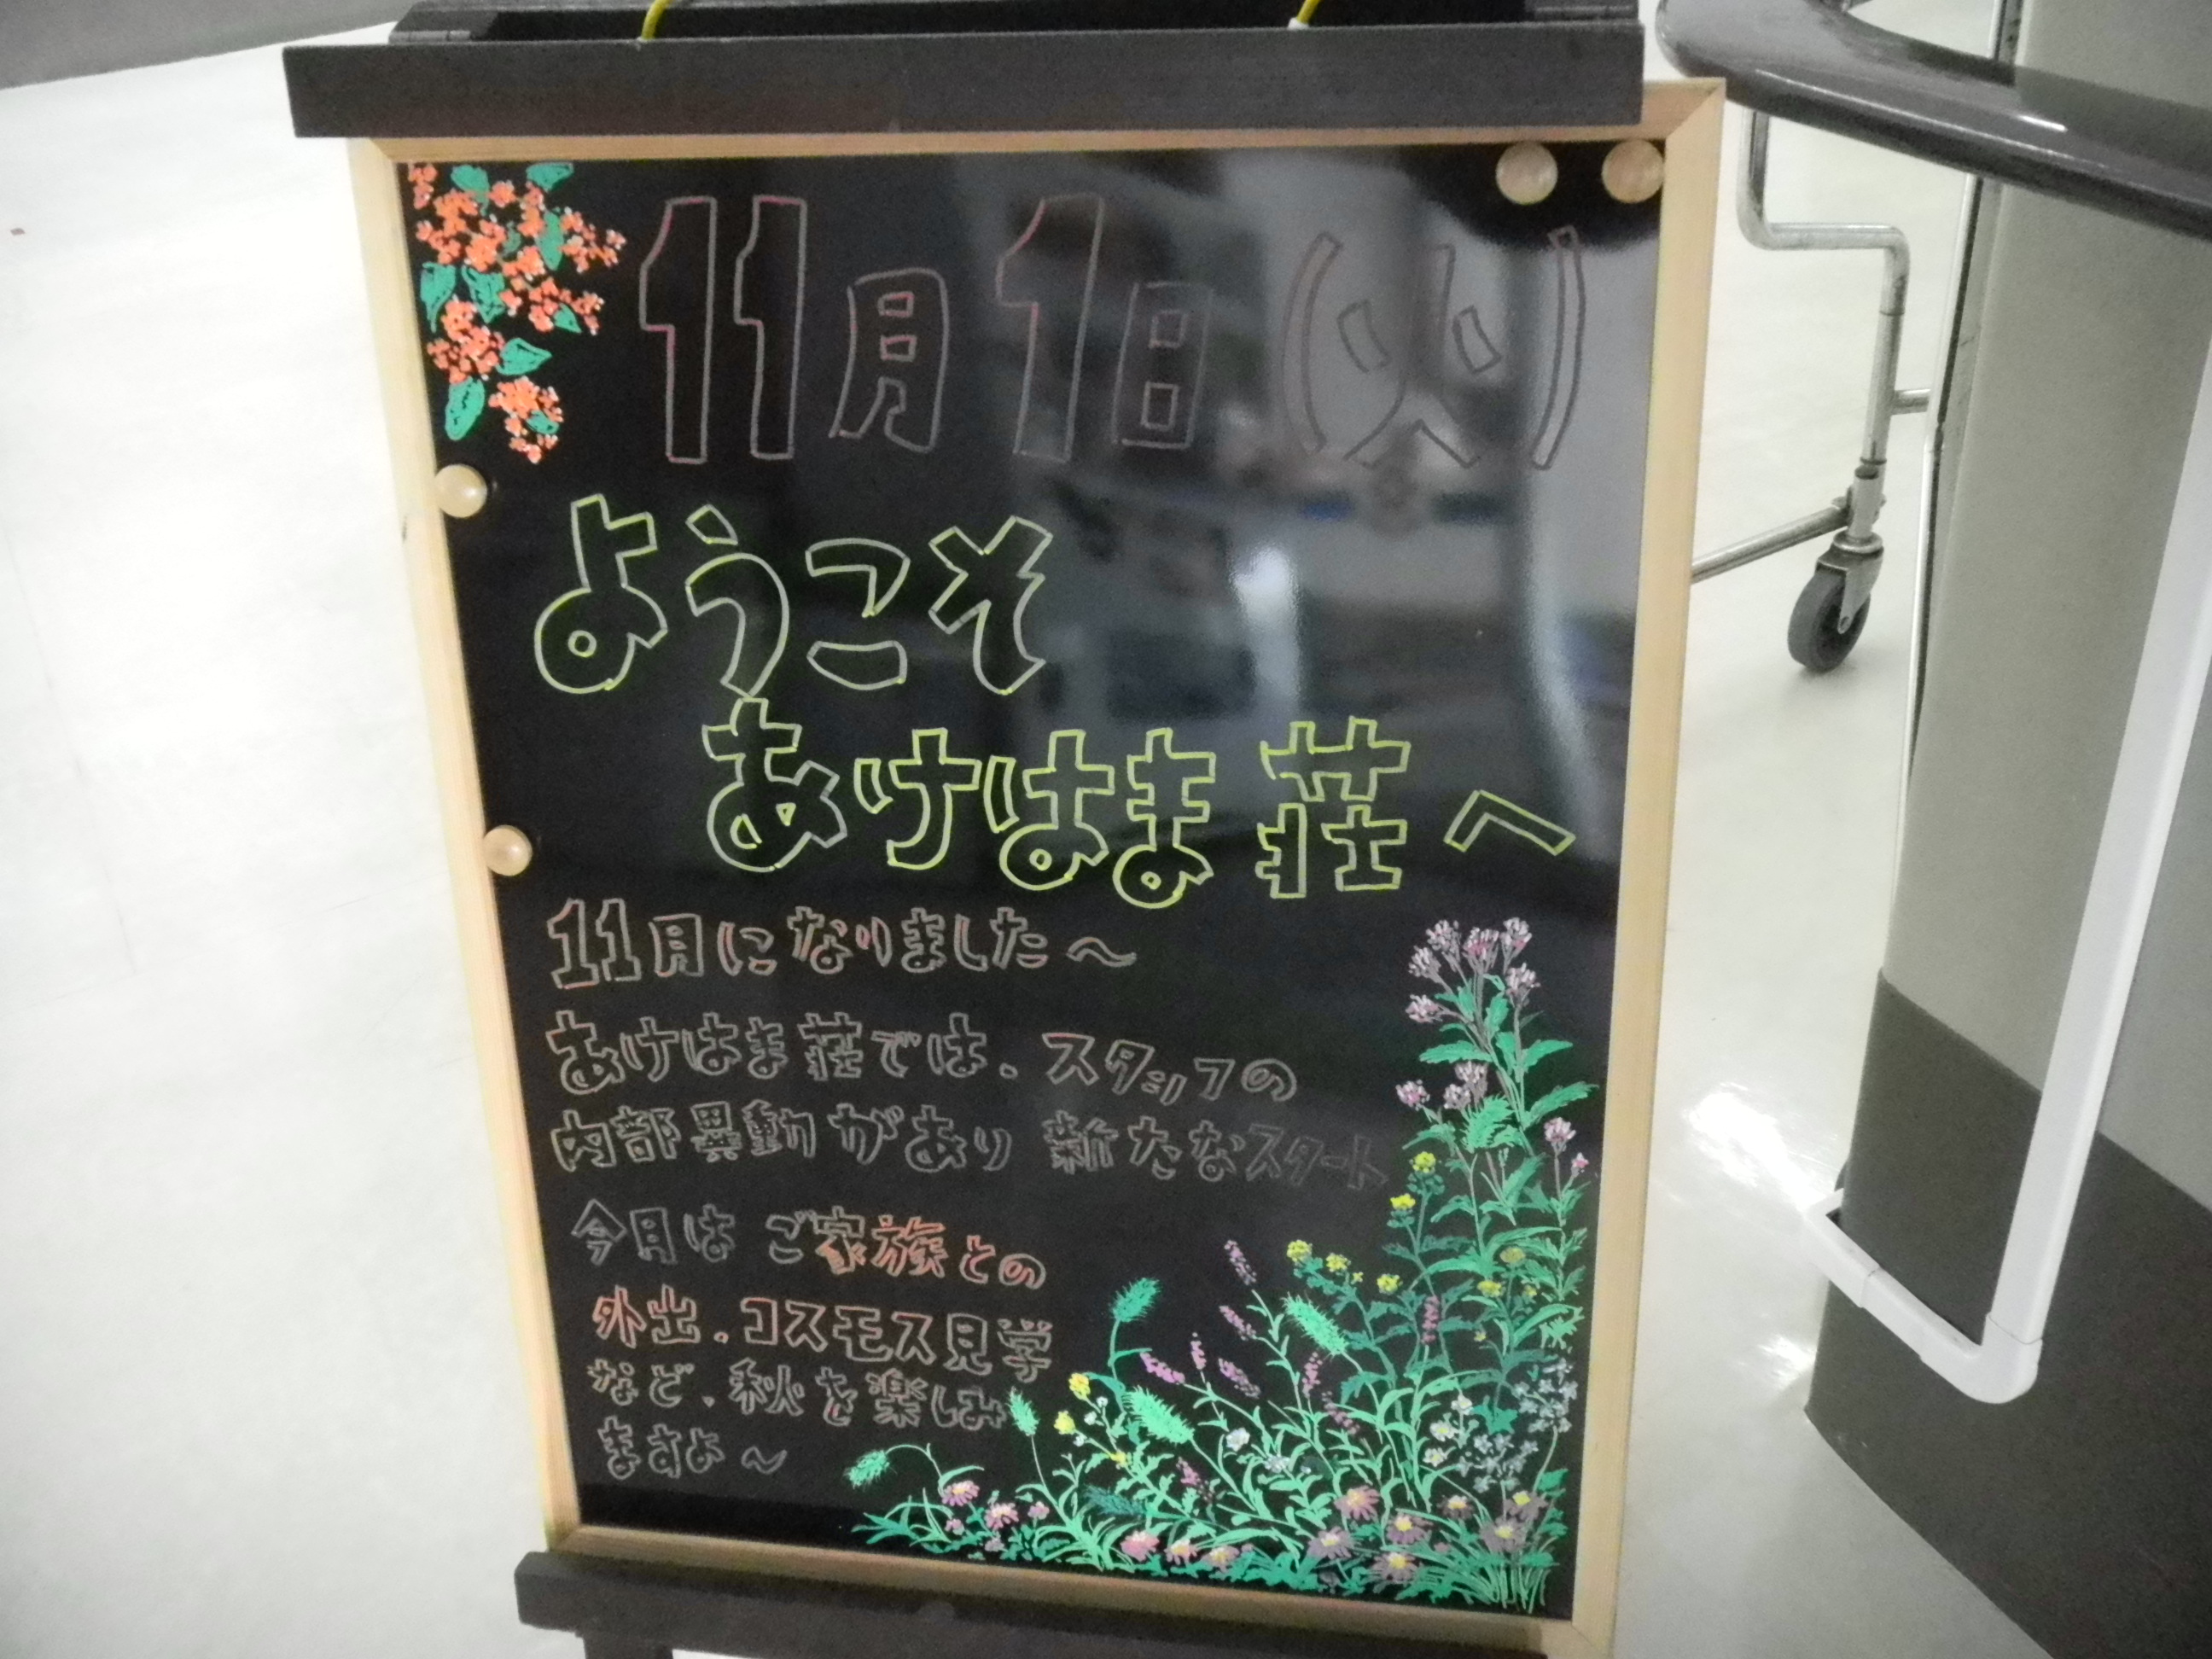 11月1日(火)
ようこそ
あけはま荘へ
11月になりました～
あけはま荘では、スタッフの
内部異動があり 新たなスタート
今月は ご家族との
外出、コスモス見学
など、秋を楽しみ
ますよ～